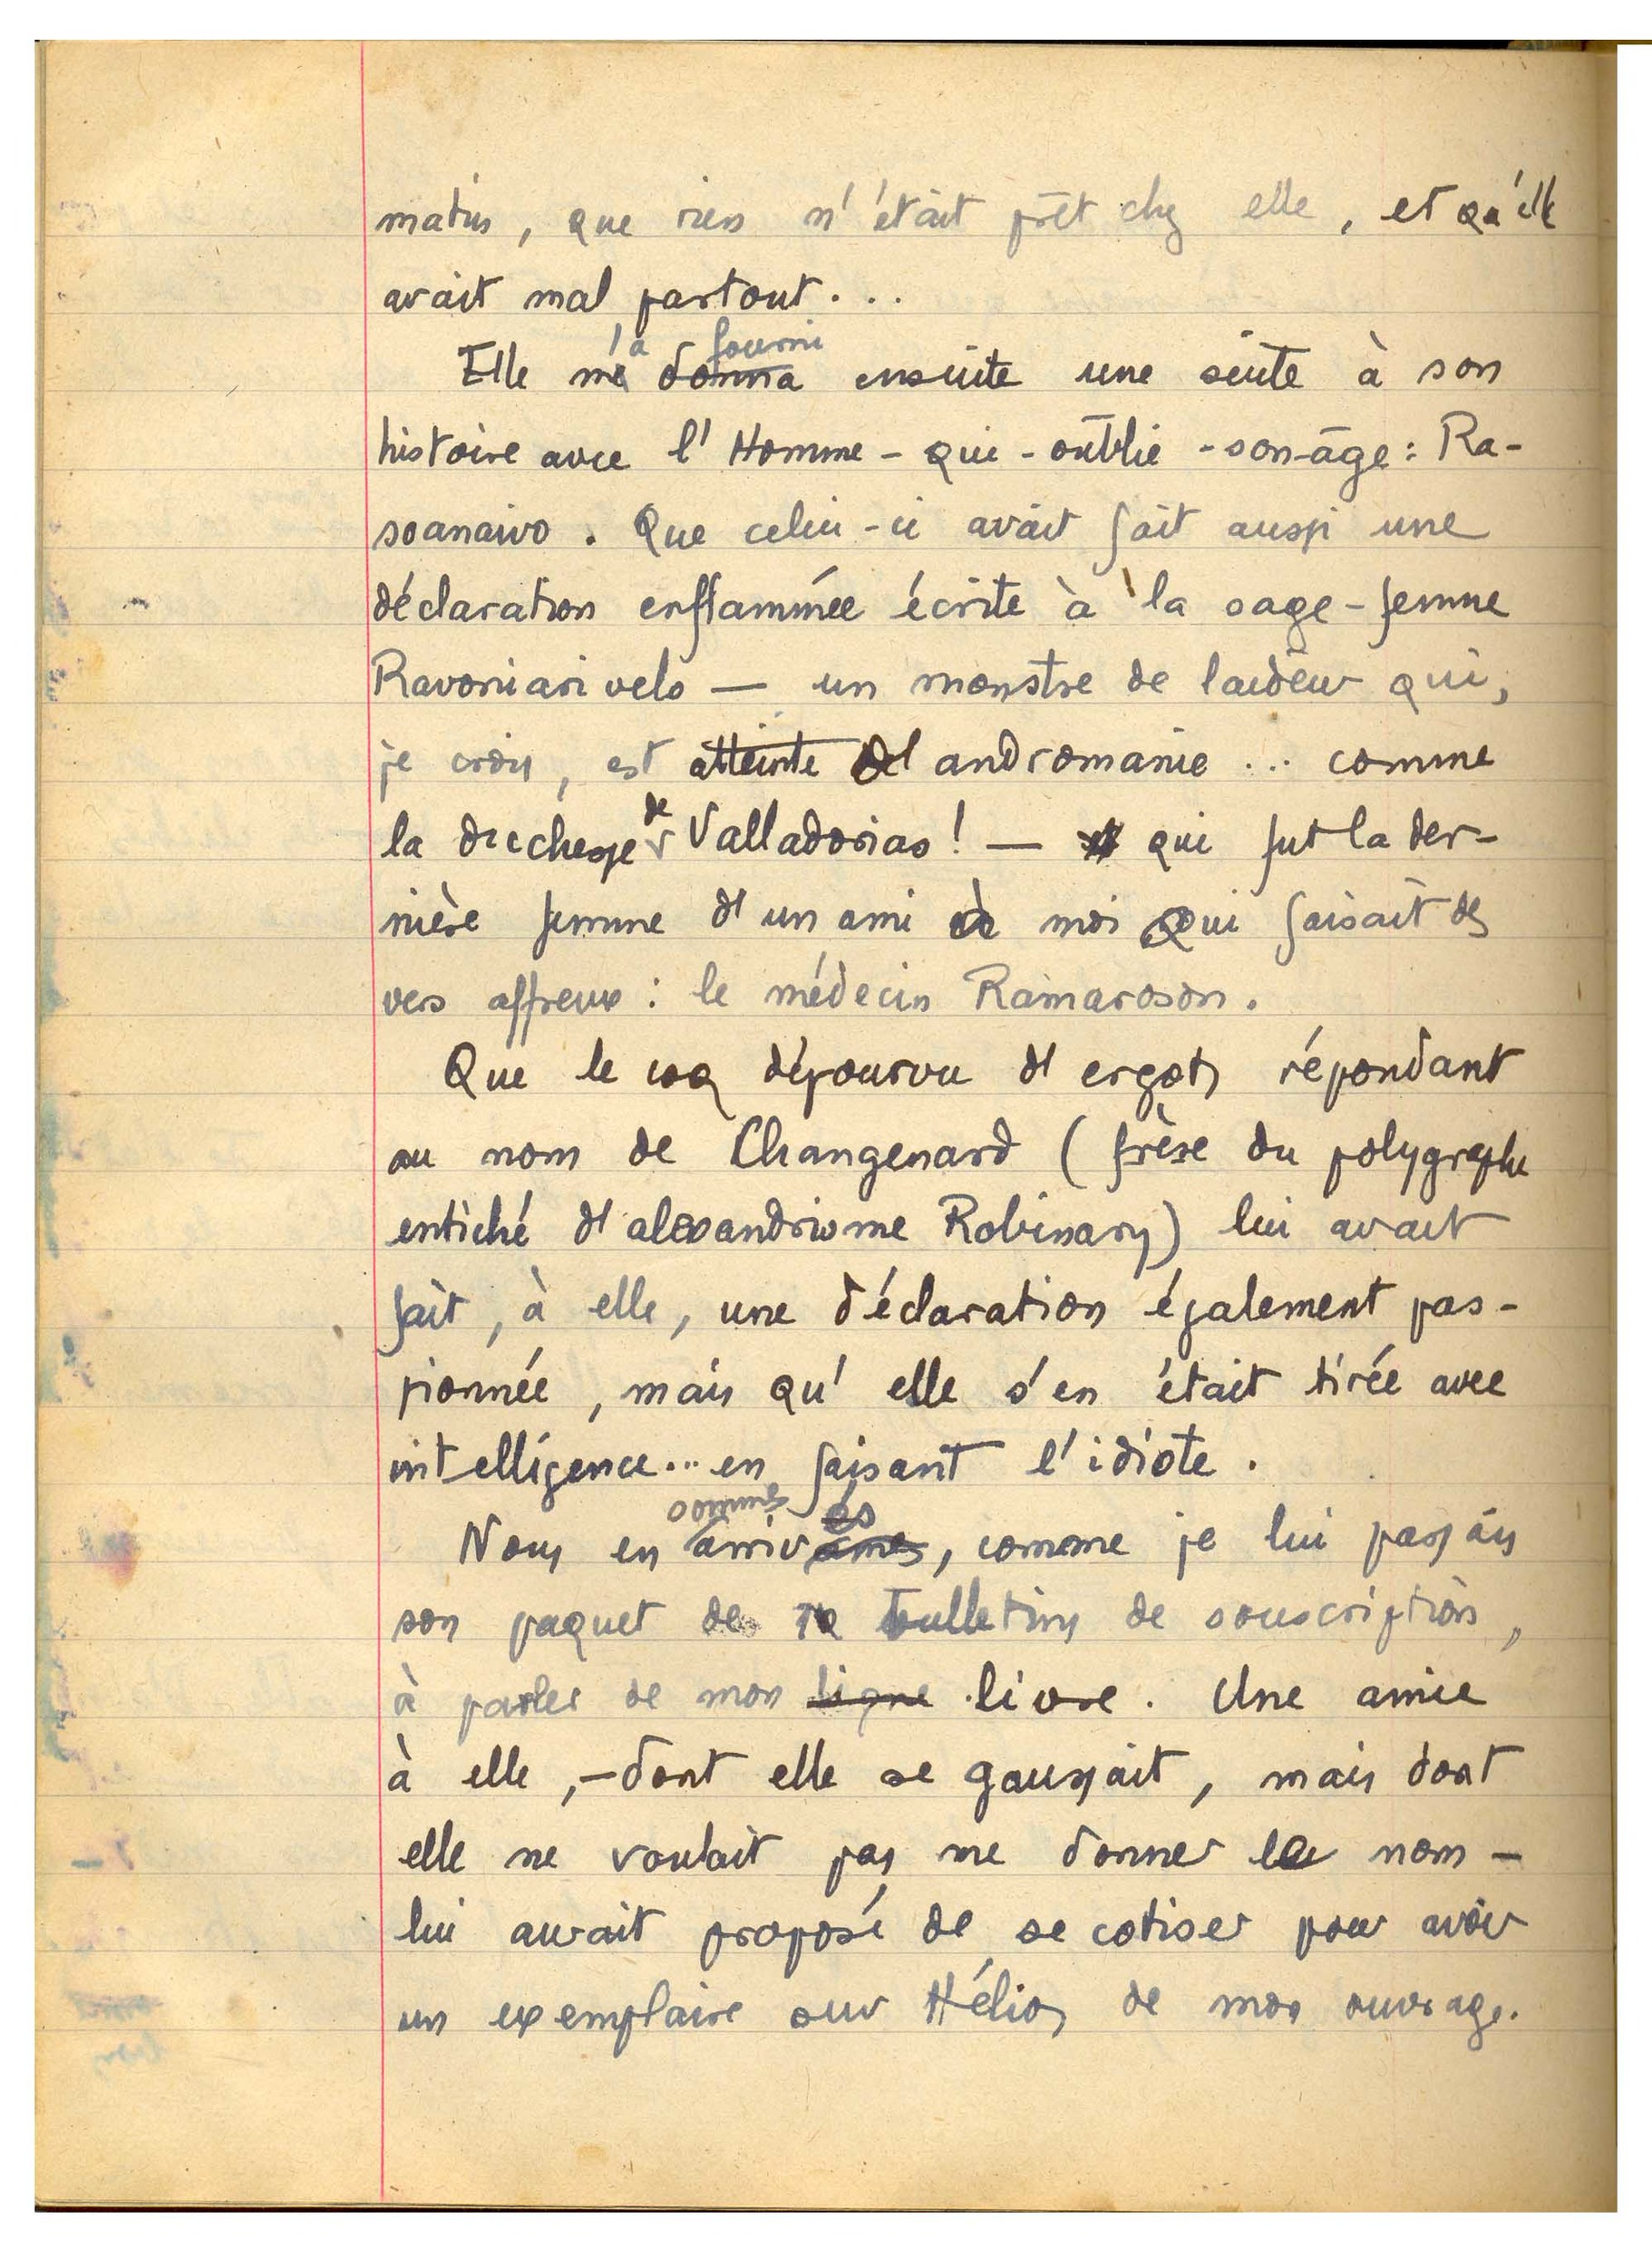 matin, que rien n'était prêt chez elle, et qu'elle
avait mal partout...
Elle m'a fourni ensuite une suite à son
histoire avec l'Homme-qui-oublie-son-âge : Ra-
soanaivo. Que celui-ci avait fait aussi une
déclaration enflammée écrite à la sage-femme
Ravoniarivelo — un monstre de laideur qui,
je crois, est atteinte d'andromanie... comme
la duchesse de Valladorias ! — qui fut la der-
nière femme d'un ami à moi qui faisait des
vers affreux : le médecin Ramaroson.
Que le coq dépourvu d'ergots répondant
au nom de Changenard (frère du polygraphe
entiché d'alexandrisme Robinary) lui avait
fait, à elle, une déclaration également pas-
sionnée, mais qu'elle s'en était tirée avec
intelligence... en faisant l'idiote.
Nous en sommes arrivés, comme je lui passais
son paquet de bulletins de souscription,
à parler de mon ligne livre. Une amie
à elle, — dont elle se gaussait, mais dont
elle ne voulait pas me donner le nom —
lui aurait proposé de se cotiser pour avoir
un exemplaire sur Hélios de mon ouvrage.